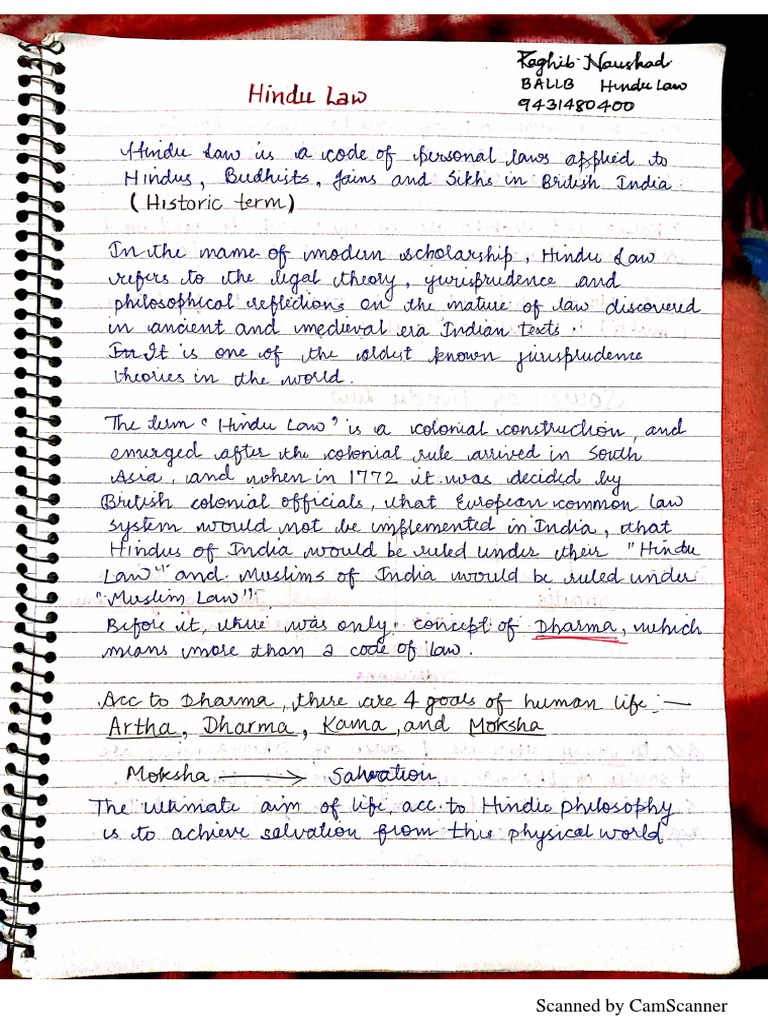 Raghib Naushad
BALLB Hindu Law
9431480400
Hindu Law
Hindu Law is a code of personal laws applied to
Hindus, Budhists, Jains and Sikhs in British India
(Historic term)
In the name of modern scholarship, Hindu Law
refers to the legal theory, jurisprudence and
philosophical reflections on the nature of law discovered
in ancient and medieval era Indian texts.
In It is one of the oldest known jurisprudence
theories in the world.
The term "Hindu Law" is a colonial construction, and
emurged after the colonial rule arrived in South
Asia, and when in 1772 it was decided by
British colonial officials, that European common law
system would not be implemented in India, that
Hindus of India would be ruled under their "Hindu
Law" and Muslims of India would be ruled under
"Muslim Law".
Before it, there was only concept of Dharma, which
means more than a code of law.
Acc to Dharma, there are 4 goals of human life :—
Artha, Dharma, Kama, and Moksha
Moksha → Salvation
The ultimate aim of life, acc. to Hindu philosophy
is to achieve salvation from this physical world
Scanned by CamScanner